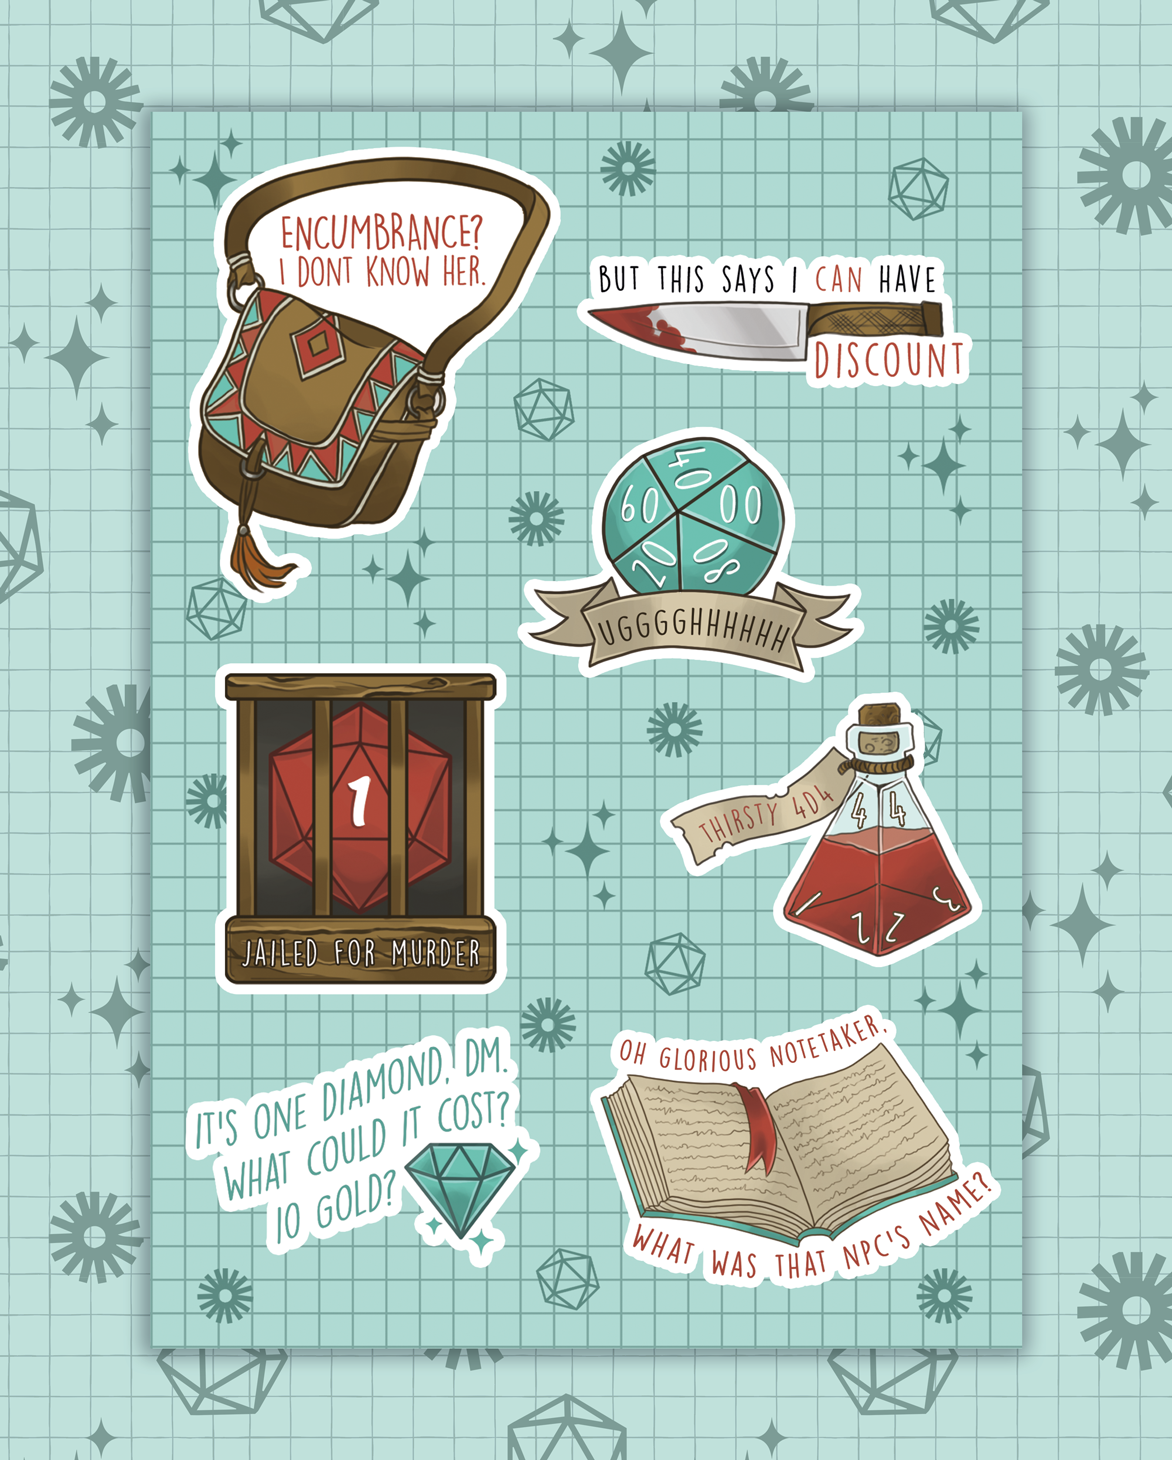 ENCUMBRANCE?
I DONT KNOW HER.
BUT THIS SAYS I CAN HAVE
DISCOUNT
40
60
00
20
80
UGGGGHHHHHH
1
JAILED FOR MURDER
THIRSTY 4D4
4 4
1 2 2 3
IT'S ONE DIAMOND, DM.
WHAT COULD IT COST?
10 GOLD?
OH GLORIOUS NOTETAKER,
WHAT WAS THAT NPC'S NAME?